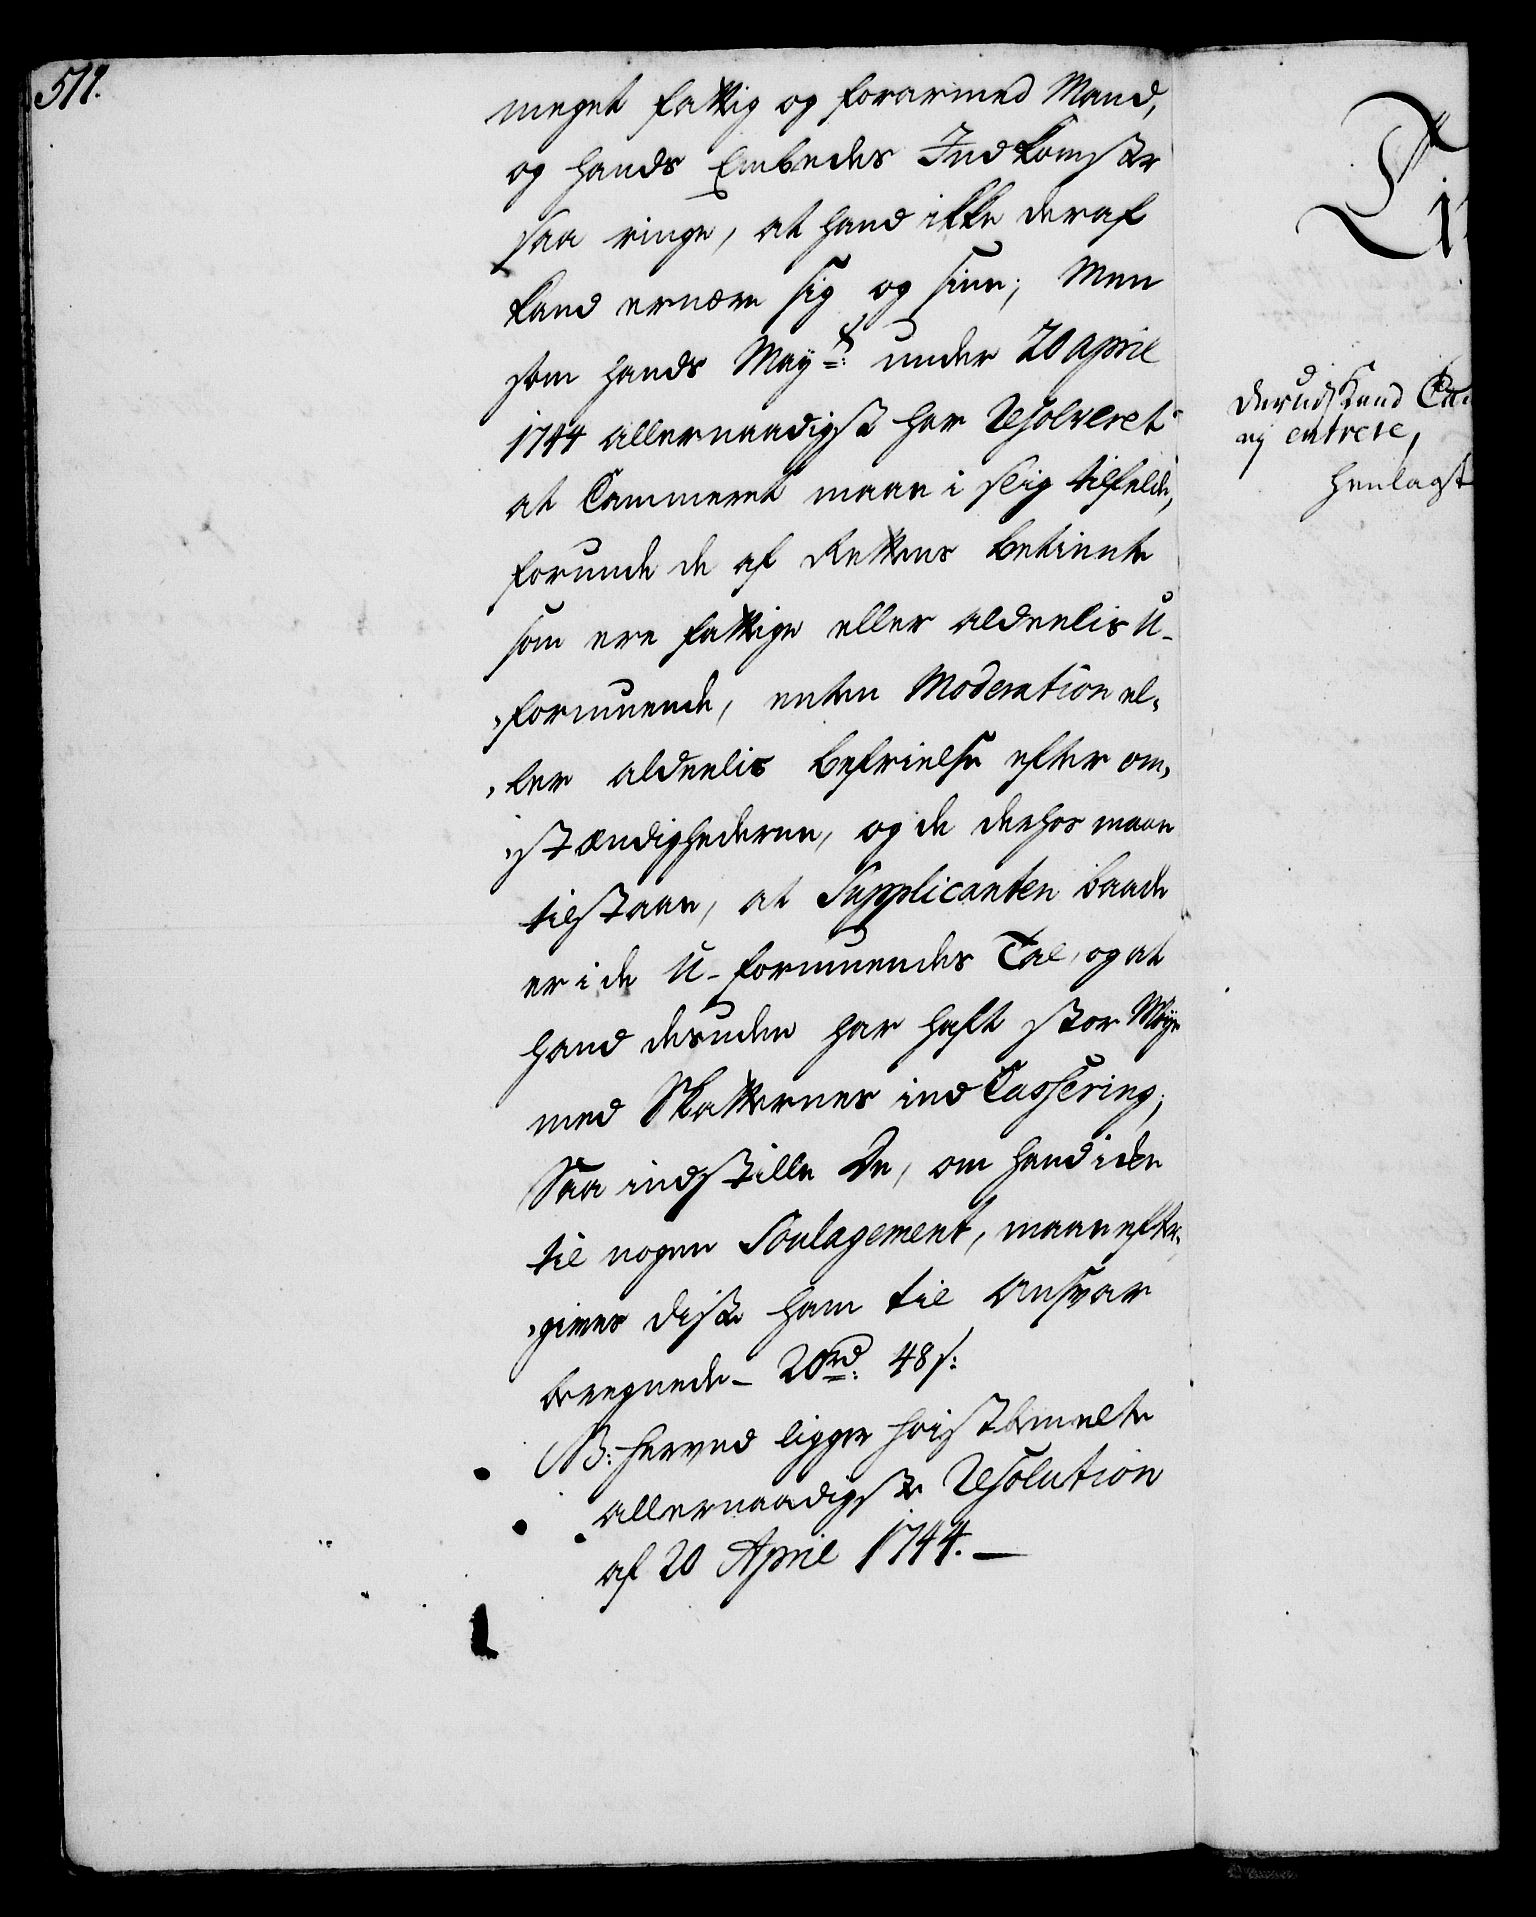 511.
meget fattig og forarmed Mand,
og hands Embedes Indkomster
saa ringe, at hand ikke deraf
kand ernære sig og sine; Men
som hands May:ts under 20 april
1744 allernaadigst har Resolveret
at Cammeret maae i slig tilfelde,
forunde de af Rettens betiente
som ere fattige eller aldeelis U-
formuende, enten Moderation el-
ler aldeelis befrielse efter om-
stændighederne, og de derhos maae
tilstaae, at Supplicanten baade
er i de U-formuendes Tal, og at
hand desuden har haft stor Møye
med Skatternes ind Cassering;
Saa indstille De, om hand icke
til nogen Soulagement, maae efter-
gives diste ham til Ansvar
beregnede - 20 rd: 48 s:
NB: herved ligger høistbemelte
allernaadigste Resolution
af 20 April 1744. -
derudj kand
ey entrere,
henlagt